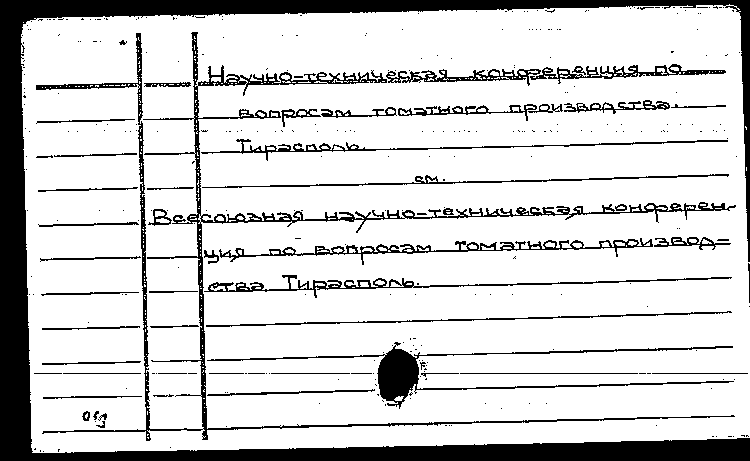 Научно-техническая конференция по
вопросам томатного производства.
Тирасполь.
см.
Всесоюзная научно-техническая конферен-
ция по вопросам томатного производ=
ства Тирасполь.